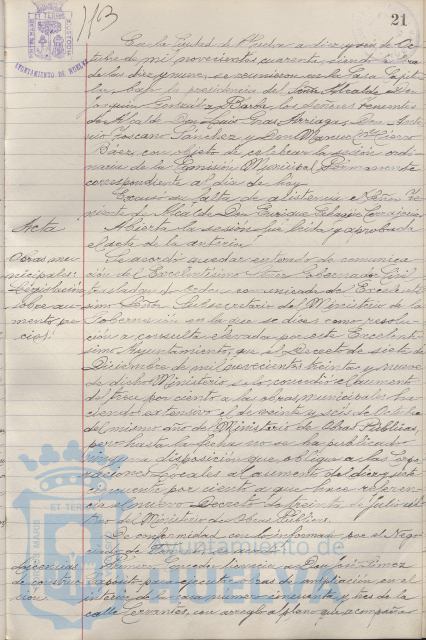 21
AYUNTAMIENTO DE HUELVA
En la Ciudad de Huelva a diez y seis de Oc-
tubre de mil novecientos cuarenta, siendo la hora
de las diez y nueve, se reunieron en la Casa Capitu-
lar, bajo la presidencia del Señor Alcalde Don
Joaquin González Barba, los señores tenientes
de Alcalde Don Luis Arriaga, Don Anto-
nio Toscano Sánchez y Don Manuel
Báez, con objeto de celebrar la sesión ordi-
naria de la Comisión Municipal Permanente
correspondiente al dia de hoy.
Excusó su falta de asistencia el Señor Te-
niente de Alcalde Don Enrique
Acta
Abierta la sesión fué leida y aprobada
el acta de la anterior.
Obras mu-
nicipales:
Legislación
sobre au-
mento pre-
cios.
Se acordó quedar enterado de comunica-
ción del Excelentísimo Señor Gobernador Civil
traslado de orden comunicada de Excelentí-
simo Señor Subsecretario del Ministerio de la
Gobernación en la que se dice como resolu-
ción a consulta elevada por este Excelentí-
simo Ayuntamiento, que el Decreto de siete de
Diciembre de mil novecientos treinta y nueve
de dicho Ministerio solo concedió el aumento
del trece por ciento a las obras municipales ha-
ciendo extensivo el de veinte y seis de Octubre
del mismo año del Ministerio de Obras Públicas,
pero hasta la fecha no se ha publicado
ninguna disposición que obligue a las Cor-
poraciones Locales al aumento del diez y siete
por ciento a que hace referen-
cia el nuevo Decreto de treinta de Julio últi-
mo del Ministerio de Obras Públicas.
De conformidad con lo informado por el Nego-
ciado de
Licencias
de construc-
ción
Primero: Conceder licencia a Don José Gómez
para ejecutar obras de ampliación en el
interior de la casa número cincuenta y tres de la
calle Cervantes, con arreglo a plano que acompaña
Ayuntamiento de
HUELVA